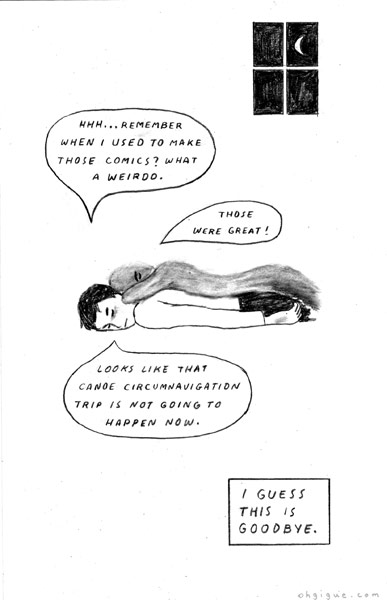 HHH...REMEMBER
WHEN I USED TO MAKE
THOSE COMICS? WHAT
A WEIRDO.
THOSE
WERE GREAT!
LOOKS LIKE THAT
CANOE CIRCUMNAVIGATION
TRIP IS NOT GOING TO
HAPPEN NOW.
I GUESS
THIS IS
GOODBYE.
ohgigue.com